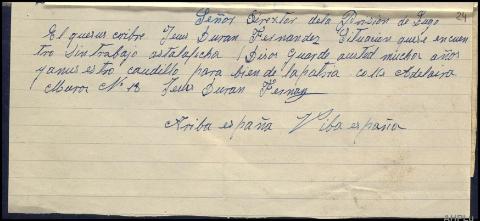 Señor Director dela Prision de Lugo
24
El querus cribre Jeus Duran Fernandez Situacion quese encuen
tro sin trabajo astalafecha / Dios Guarde austed muchos años
yanuestro caudillo para bien de lapatria calla Adelaira
Muros Nº 18 Jeus Duran Fernaz
Ariba españa Viba españa